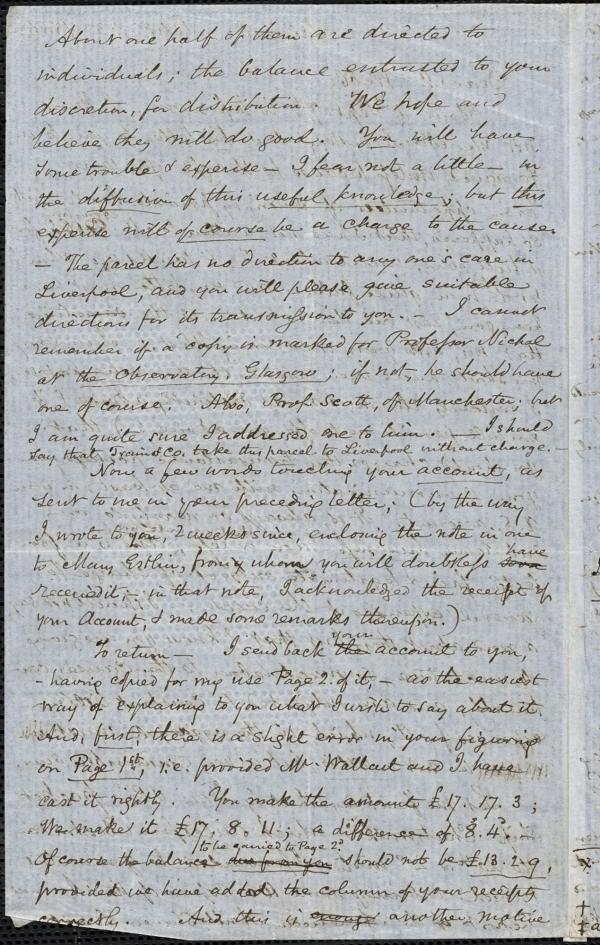 About one half of them are directed to
individuals; the balance entrusted to your
discretion, for distribution. We hope and
believe they will do good. You will have
some trouble & expense — I fear not a little — in
the diffusion of this useful knowledge; but this
expense will of course be a charge to the cause.
— The parcel has no direction to any one's care in
Liverpool, and you will please give suitable
directions for its transmission to you. — I cannot
remember if a copy is marked for Professor Nichol
at the Observatory, Glasgow; if not, he should have
one of course. Also, Prof. Scott, of Manchester; but
I am quite sure I addressed one to him. — I should
say that Train & Co. take this parcel to Liverpool without charge. —
Now a few words touching your account, as
sent to me in your preceding letter; (by the way
I wrote to you, 2 weeks since, enclosing the note in one
to Mary Estlin, from whom you will doubtless have
received it, — in that note, I acknowledged the receipt of
your Account, & made some remarks thereupon.)
To return — I send back the your account to you,
— having copied for my use Page 2. of it, — as the easiest
way of explaining to you what I wish to say about it.
And, first, there is a slight error in your figuring
on Page 1st, i.e. provided Mr. Wallcut and I have
cast it rightly. You make the amount £17. 17. 3;
We make it £17. 8. 11.; a difference of 8.s 4.d —
Of course the balance due from you to be carried to Page 2d should not be £13. 2. 9,
provided we have added the column of your receipts
correctly. And this is enough another motive